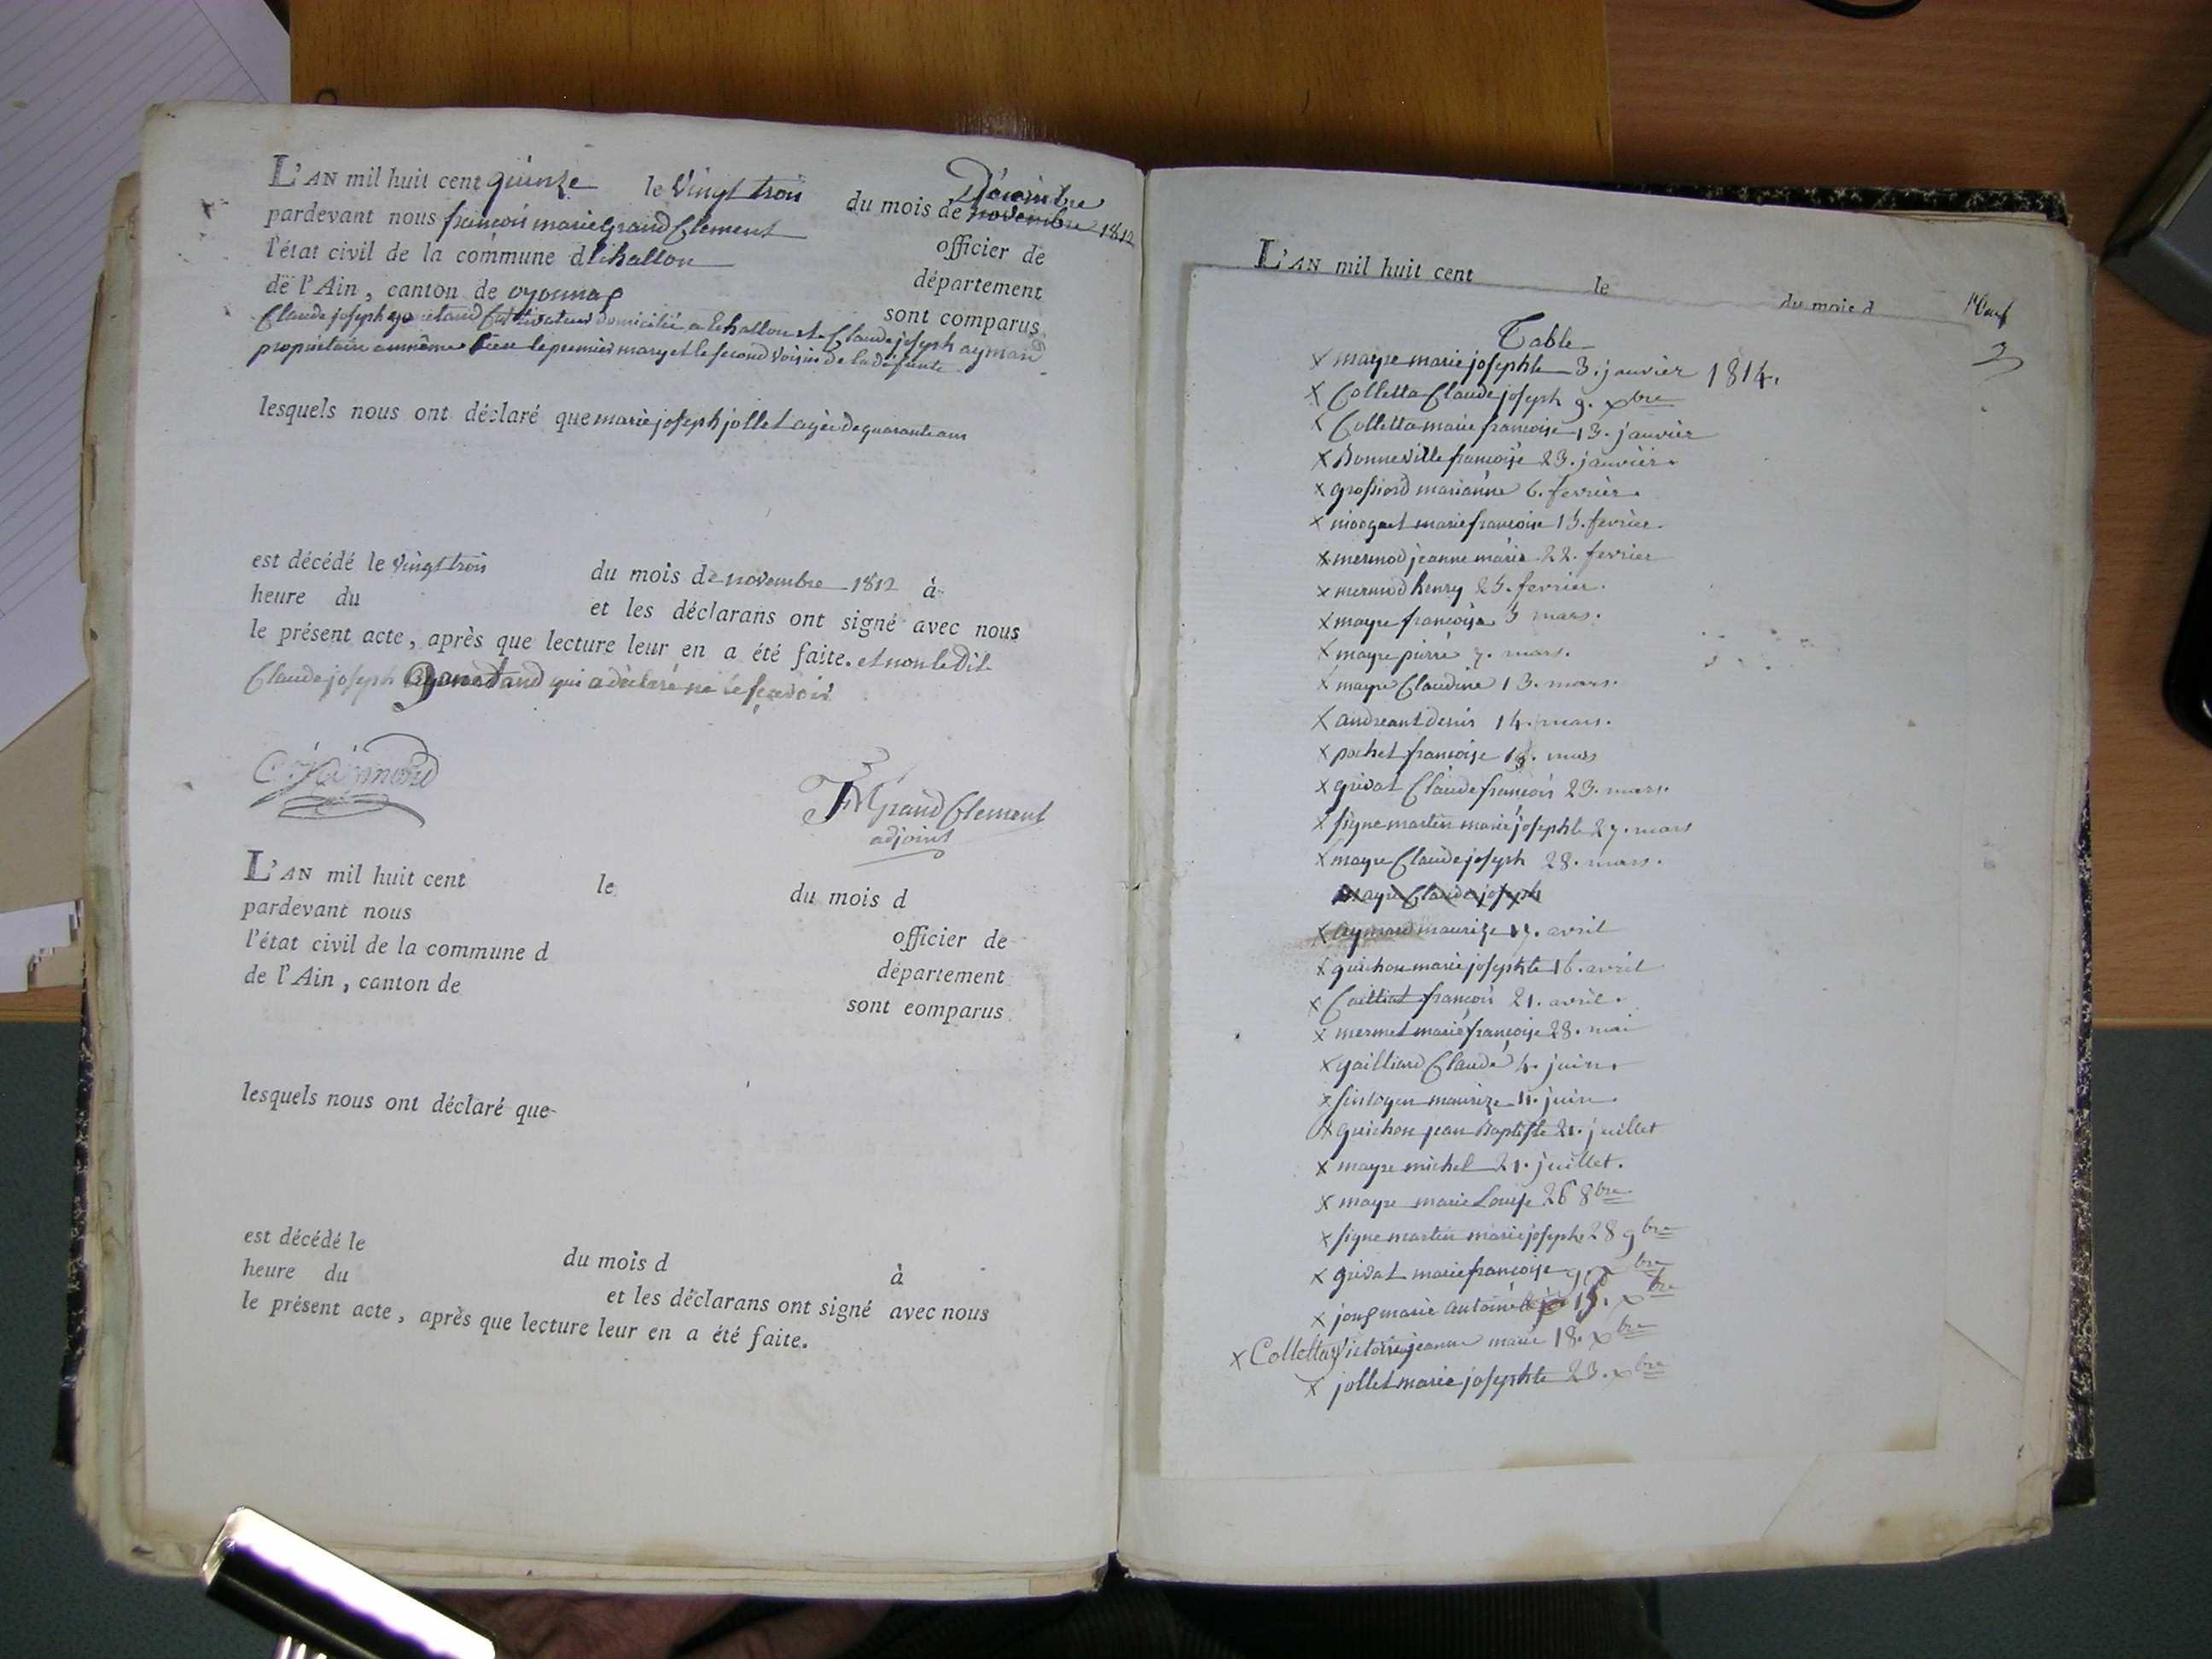 L'AN mil huit cent quinze le Vingt trois du mois de novembre Décembre 1812
pardevant nous françois marie Grand Clement officier de
l'état civil de la commune d'Echallon département
de l'Ain, canton de oyonnax sont comparus
Claude joseph Cultivateur domicilié a Echallon et Claude joseph aymand
propriétaire au même Lieu le premier mary et le second Voisin de la défunte
lesquels nous ont déclaré que marie joseph jollet agée de quarante ans
est décédé le Vingt trois du mois de novembre 1812 à
heure du et les déclarans ont signé avec nous
le présent acte, après que lecture leur en a été faite. et non le Dit
Claude joseph qui a déclaré ne le sçavoir
FM Grand Clement
adjoint
L'AN mil huit cent le du mois d
pardevant nous officier de
l'état civil de la commune d département
de l'Ain, canton de sont comparus
lesquels nous ont déclaré que
est décédé le du mois d à
heure du et les déclarans ont signé avec nous
le présent acte, après que lecture leur en a été faite.
L'AN mil huit cent le du mois d
Table
x mayre marie josephte 3. janvier 1814.
x Colletta Claude joseph 9. xbre
x Colletta marie françoise 13. janvier
x Bonneville françoise 23. janvier.
x grossiord marianne 6. fevrier.
x marie françoise 15. fevrier.
x mermod jeanne marie 22. fevrier
x mermod henry 25. fevrier.
x mayre françoise 3 mars.
x mayre pierre 7. mars.
x mayre Claudine 13. mars.
x andreant denis 14. mars.
x pochet françoise mars
x grivat Claude françois 23. mars.
x signe martin marie josephte 27. mars
x mayre Claude joseph 28. mars.
mayre Claude joseph
x aymand maurize avril
x guichon marie josephte 16. avril
x françois 21. avril.
x mermet marie françoise 28. mai
x gailliard Claude 4. juin.
x maurize 11. juin.
x guichon jean Baptiste 21. juillet
x mayre michel 21. juillet.
x mayre marie Louise 26 8bre
x signe martin marie joseph 28 9bre
x grivat marie françoise 9. xbre
x marie antoine 15. xbre
x Colletta Victoire jeanne marie 18. xbre
x jollet marie josephte 23. xbre